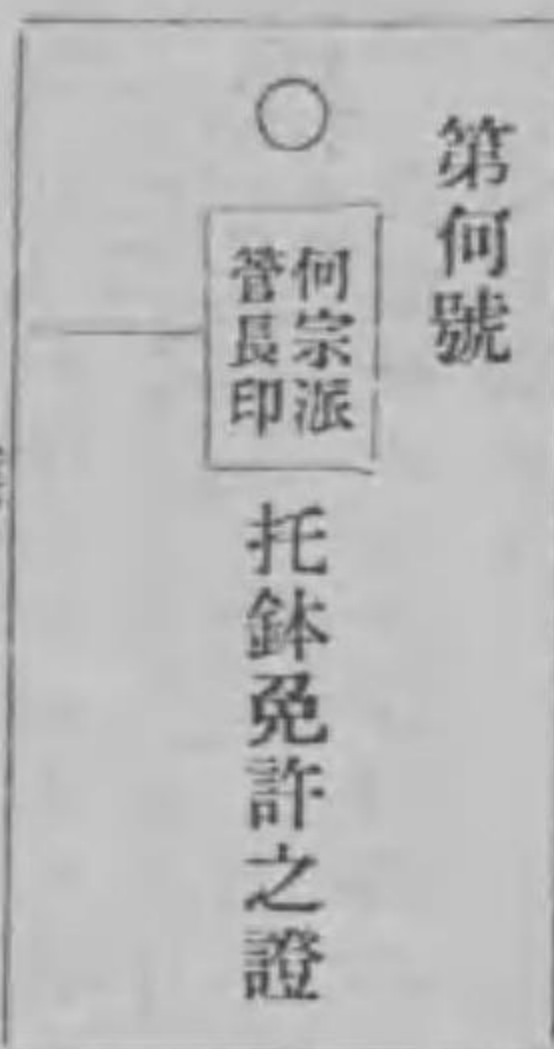 第何號
何宗派
管長印
托鉢免許之證